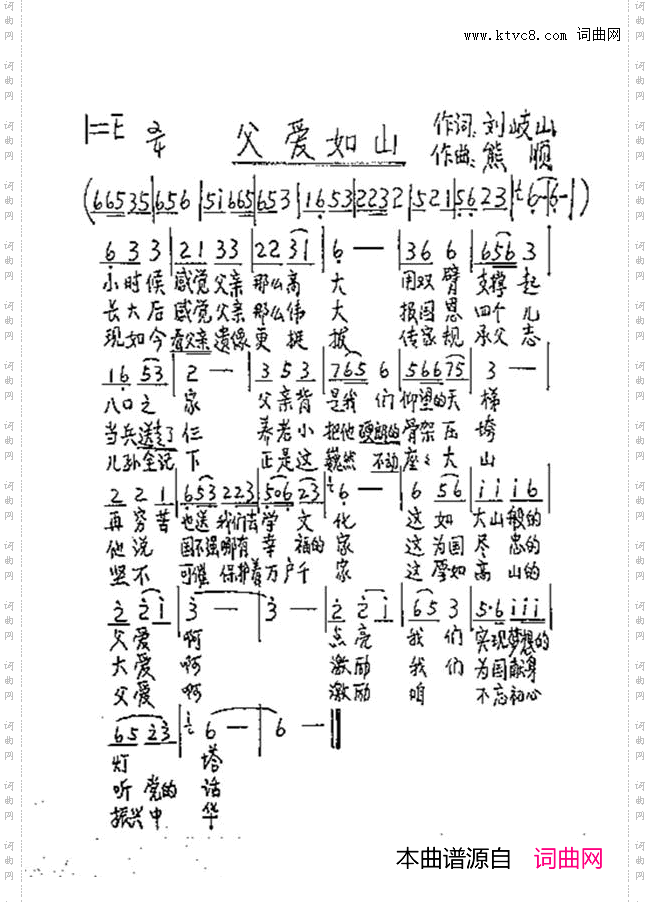 www.ktvc8.com 词曲网
1=E 2/4 父爱如山 作词:刘岐山
作曲:熊 顺
(665 35|656|5i 665|653|16 53|2232|521|56 23|6-|6-|)
6 3 3|21 33|22 31|6 —|36 6|656 3|
小时候 感觉 父亲 那么高 大 用双臂 支撑 起
长大后 感觉 父亲 那么伟 大 报国恩 四个 儿
现如今 看父亲 遗像 更 挺 拔 传家规 承父 志
16 53|2 —|3 5 3|765 6|566 75|3 —|
八口之 家 父亲背 是我 们 仰望的天 梯
当兵送走了 仨 养老小 把他 硬朗的 骨架 压 垮
儿孙全记 下 正是这 巍然 不动 座座大 山
2 2 1|653 223|5·06 23|6 —|6 56|i i i 6|
再穷苦 也送 我们去 学 文 化 这如 大山般的
他说 国不强哪有 幸 福的 家 这为国 尽 忠的
坚不 可催 保护着 万户千 家 这厚如高 山的
2 2 i|3 —|3 —|2 2 i|65 3|5·6 i i i|
父爱 啊 点亮 我 们 实现梦想的
大爱 啊 激励 我 们 为国献身
父爱 啊 激励 咱 不忘初心
65 23|6 —|6 —‖
灯 塔
听 党的 话
振兴中 华
本曲谱源自 词曲网
词曲网